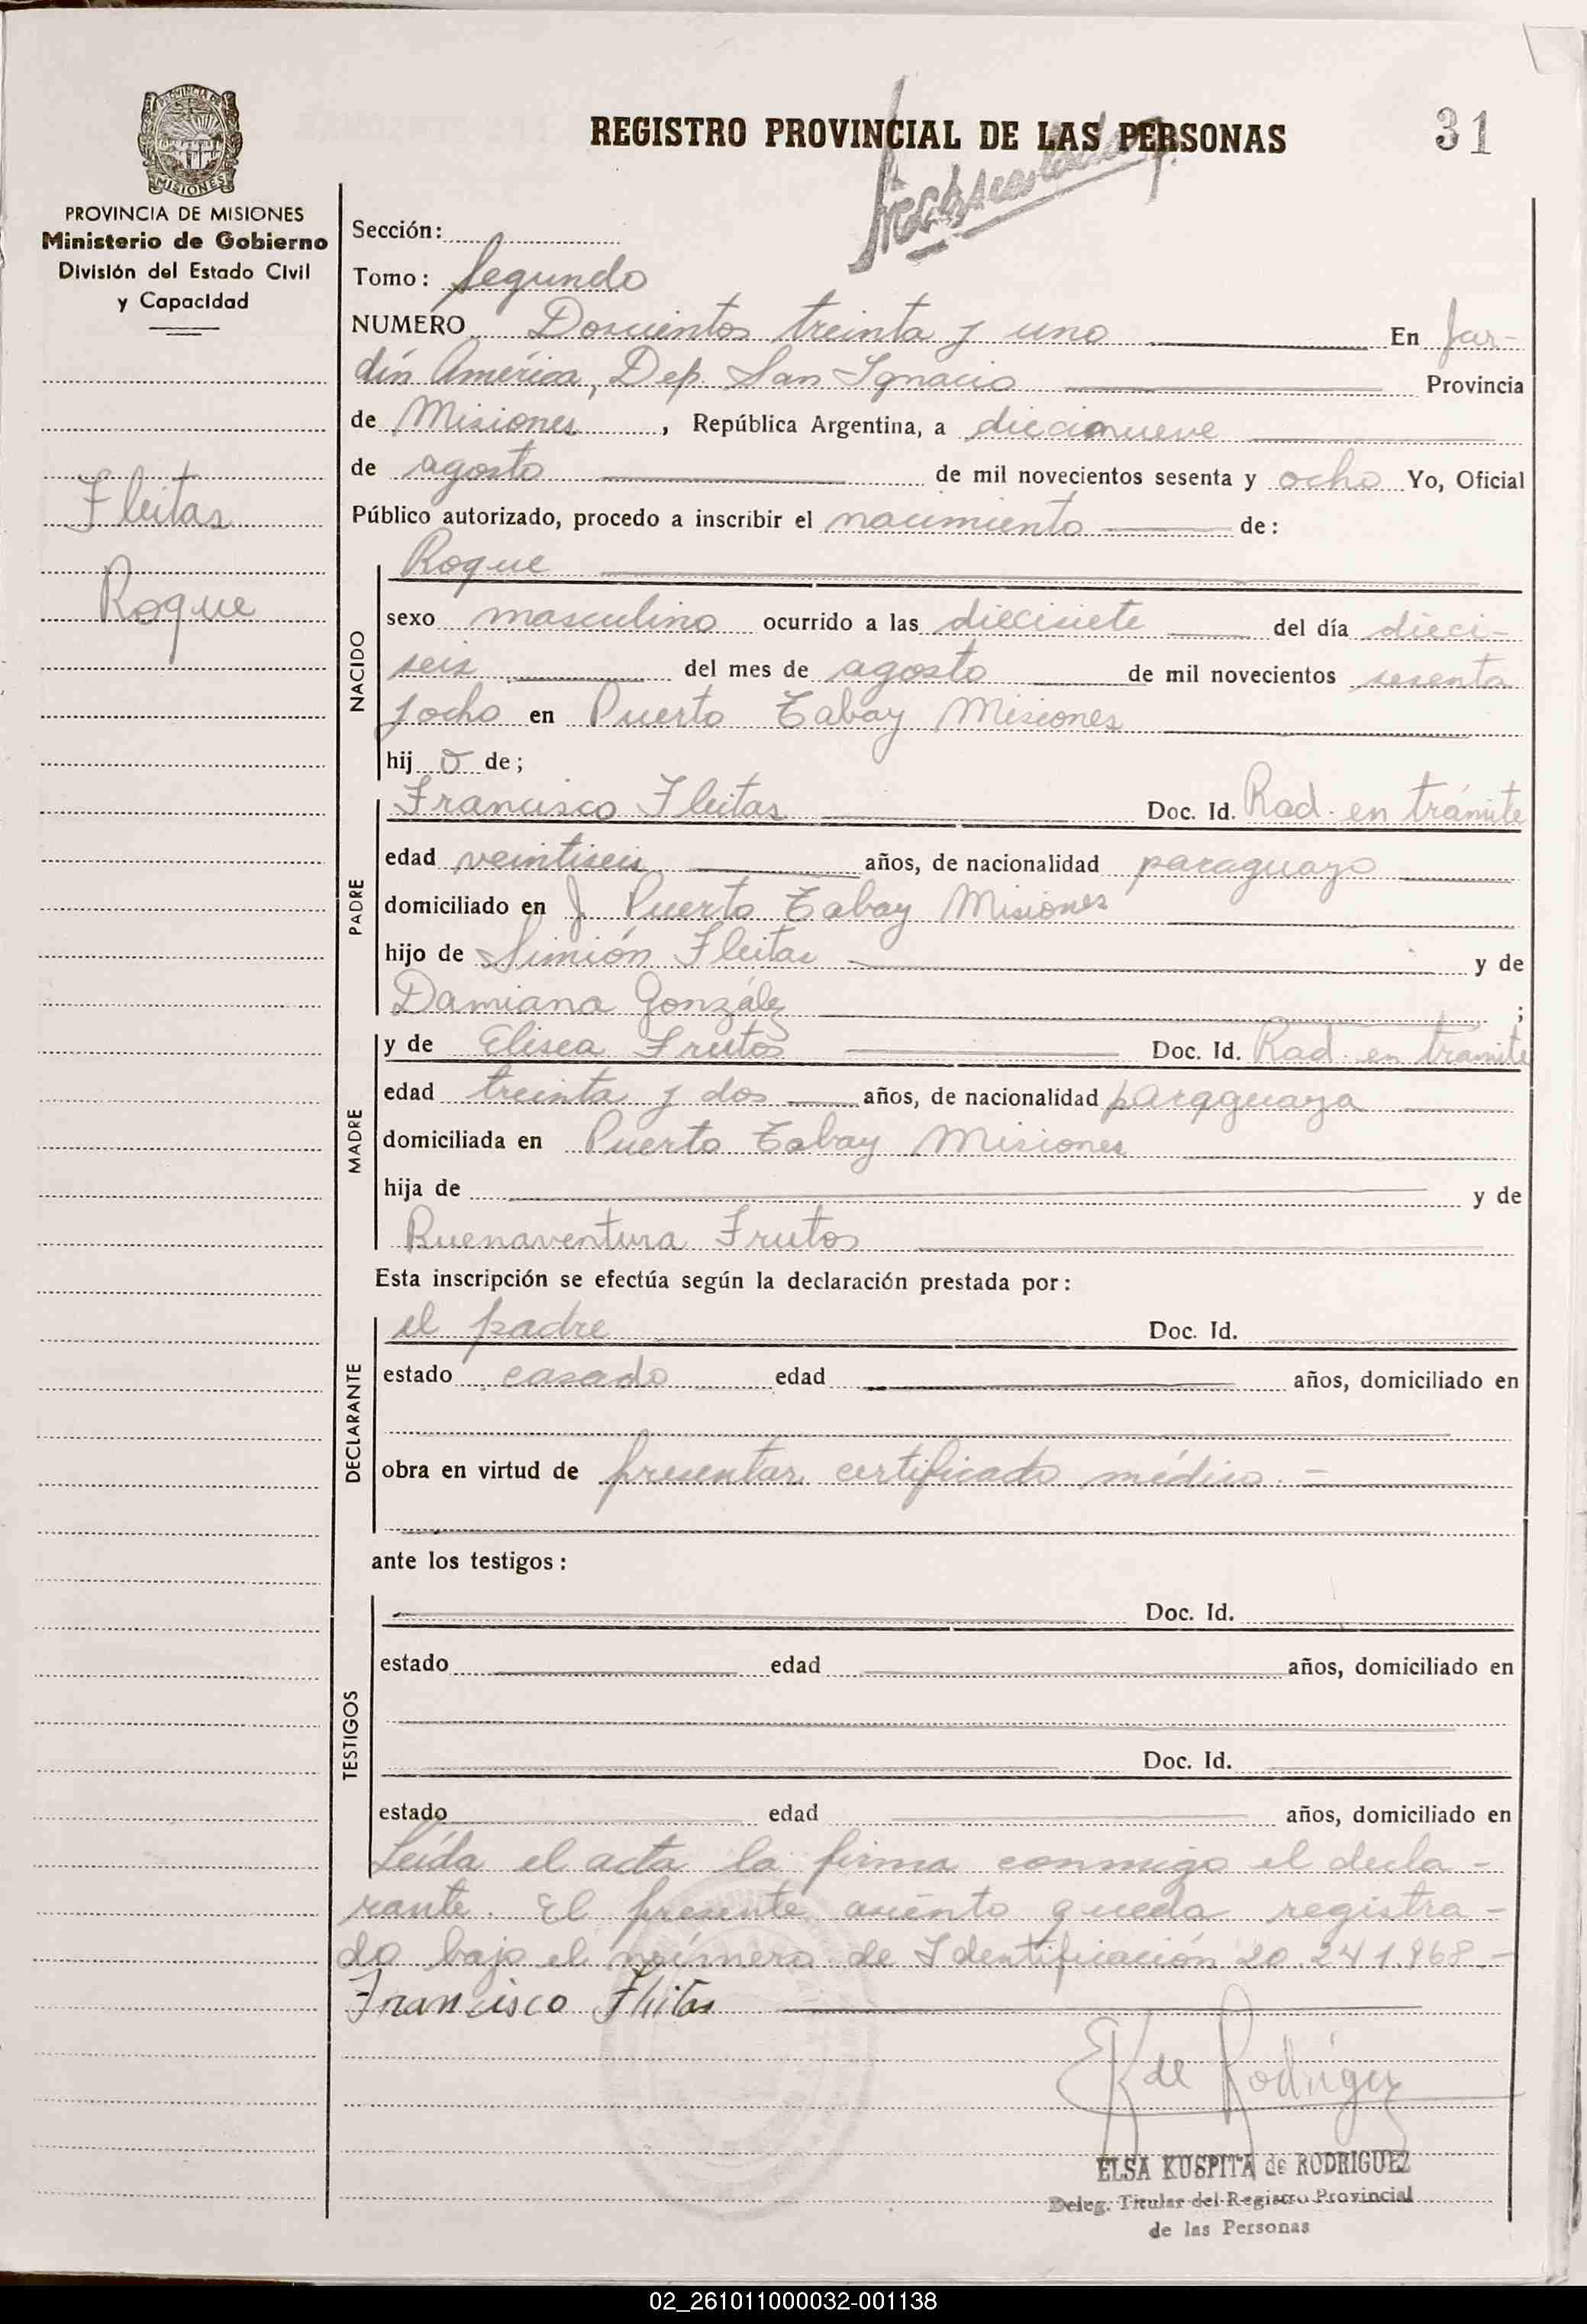 REGISTRO PROVINCIAL DE LAS PERSONAS
31
PROVINCIA DE MISIONES
MISIONES
PROVINCIA DE MISIONES
Ministerio de Gobierno
División del Estado Civil
y Capacidad
Fleitas
Roque
Sección:
Tomo: Segundo
NUMERO Doscientos treinta y uno En Jar-
dín América, Dep. San Ignacio Provincia
de Misiones, República Argentina, a diecinueve
de agosto de mil novecientos sesenta y ocho Yo, Oficial
Público autorizado, procedo a inscribir el nacimiento de:
NACIDO
Roque
sexo masculino ocurrido a las diecisiete del día dieci-
seis del mes de agosto de mil novecientos sesenta
y ocho en Puerto Tabay Misiones
hij o de;
PADRE
Francisco Fleitas Doc. Id. Rad. en trámite
edad veintiseis años, de nacionalidad paraguayo
domiciliado en Puerto Tabay Misiones
hijo de Simión Fleitas y de
Damiana González ;
MADRE
y de Elisea Frutos Doc. Id. Rad en tramite
edad treinta y dos años, de nacionalidad paraguaya
domiciliada en Puerto Tabay Misiones
hija de y de
Buenaventura Frutos
Esta inscripción se efectúa según la declaración prestada por:
DECLARANTE
el padre Doc. Id.
estado casado edad años, domiciliado en
obra en virtud de presentar certificado médico.-
ante los testigos:
TESTIGOS
Doc. Id.
estado edad años, domiciliado en
Doc. Id.
estado edad años, domiciliado en
Leída el acta la firma conmigo el decla-
rante. El presente asiento queda registra-
do bajo el número de Identificación 20.241.968.-
Francisco Fleitas
EK de Rodriguez
ELSA KUSPITA de RODRIGUEZ
Deleg. Titular del Registro Provincial
de las Personas
02_261011000032-001138